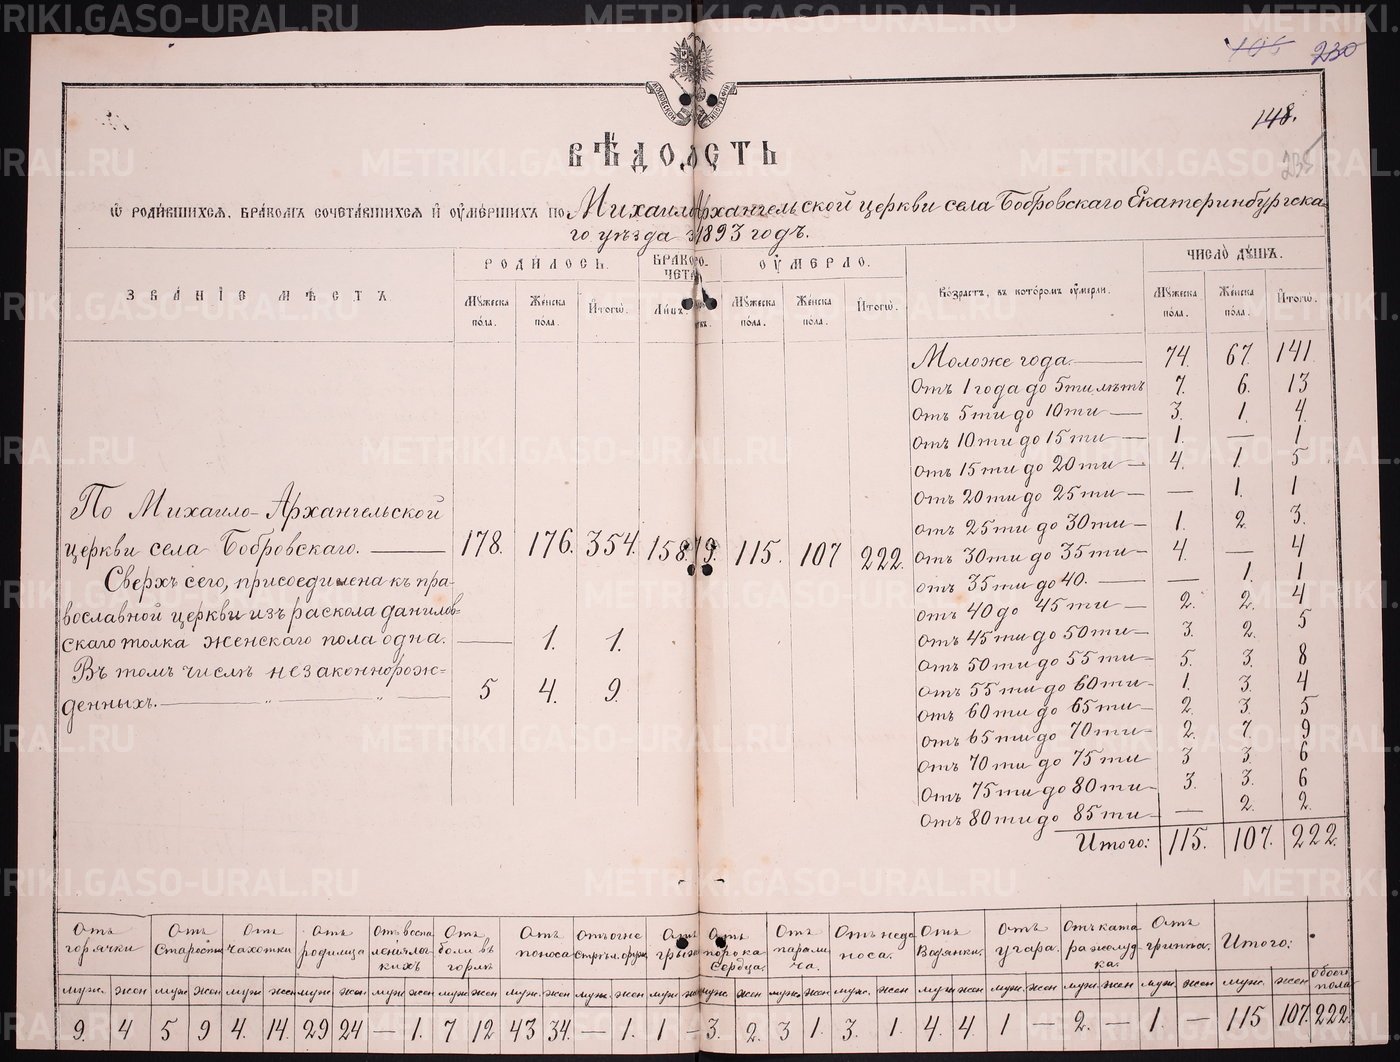 METRIKI.GASO-URAL.RU
105 230
148.
235
МОСКОВСКОЙ ТИПОГРАФІИ
ВѢДОМОСТЬ
Ѡ РОДИВШИХСЯ, БРАКОМЪ СОЧЕТАВШИХСЯ И ОУМЕРШИХЪ ПО Михаило Архангельской церкви села Бобровскаго Екатеринбургска
го уѣзда за 1893 годъ.
ЗВАНІЕ МѢСТЪ
РОДИЛОСЬ.
БРАКО СОЧЕТА
ОУМЕРЛО.
Возрастъ, въ которомъ оумерли.
ЧИСЛО ДУШЪ.
Мужеска пола. Женска пола. Итогѡ. Лицъ. Мужеска пола. Женска пола. Итогѡ. Мужеска пола. Женска пола. Итогѡ.
По Михаило-Архангельской
церкви села Бобровскаго. 178. 176. 354. 158. 79. 115. 107 222.
Сверхъ сего, присоединена къ пра-
вославной церкви изъ раскола данилов-
скаго толка женскаго пола одна. — 1. 1.
Въ томъ числѣ незаконнорож-
денныхъ. — „ — 5 4. 9.
Моложе года. — 74. 67. 141.
Отъ 1 года до 5ти лѣтъ 7. 6. 13
Отъ 5ти до 10ти — 3. 1. 4.
Отъ 10ти до 15ти — 1. — 1
Отъ 15ти до 20ти — 4. 1. 5
Отъ 20ти до 25ти — — 1. 1
Отъ 25ти до 30ти — 1. 2. 3.
Отъ 30ти до 35ти — 4. — 4
Отъ 35ти до 40. — — 1. 1
Отъ 40 до 45ти — 2. 2. 4
Отъ 45ти до 50ти — 3. 2. 5
Отъ 50ти до 55ти — 5. 3. 8
Отъ 55ти до 60ти — 1. 3. 4
Отъ 60ти до 65ти — 2. 3. 5
Отъ 65ти до 70ти — 2. 7. 9
Отъ 70ти до 75ти 3 3. 6
Отъ 75ти до 80ти — 3. 3. 6
Отъ 80ти до 85ти — — 2. 2.
Итого: 115. 107. 222.
Отъ горячки Отъ Старости Отъ чахотки Отъ родимца Отъ воспа Отъ боли въ горлѣ Отъ поноса Отъ огне стрѣл. оруж. Отъ грыжи Отъ порока сердца. Отъ парали ча. Отъ недо носа. Отъ Водянки. Отъ угара. Отъ ката ра желуд ка. Отъ гриппа. Итого:
муж. жен муж. жен муж. жен муж. жен муж. жен муж. жен муж. жен муж. жен муж. жен муж. жен муж. жен муж. жен муж. жен муж. жен муж. жен муж. жен муж. жен обоего пола.
9. 4 5 9 4. 14. 29 24 — 1. 7 12 43 34. — 1. 1 — 3. 2. 3 1. 3. 1. 4. 4 1 — 2. — 1. — 115 107. 222.